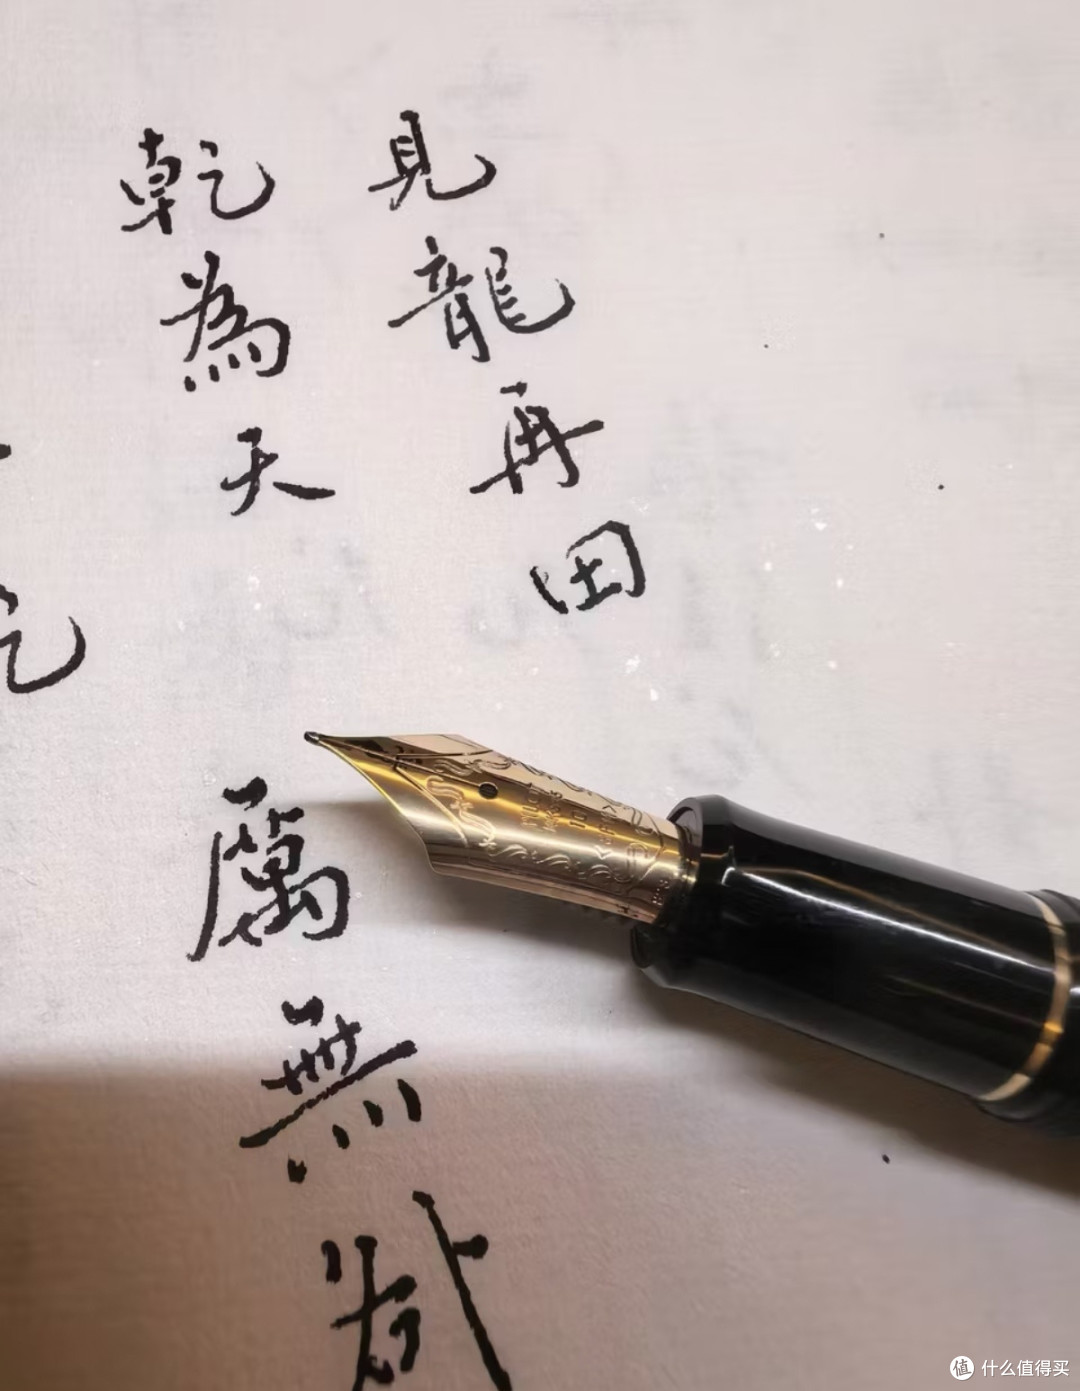 見龍再田
乾為天
厲無
什么值得买